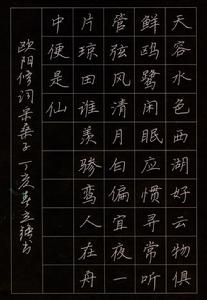 天容水色西湖好云物俱
鲜鸥鹭闲眠应惯寻常听
管弦风清月白偏宜夜一
片琼田谁羡骖鸾人在舟
中便是仙
欧阳修词采桑子 丁亥春立强书